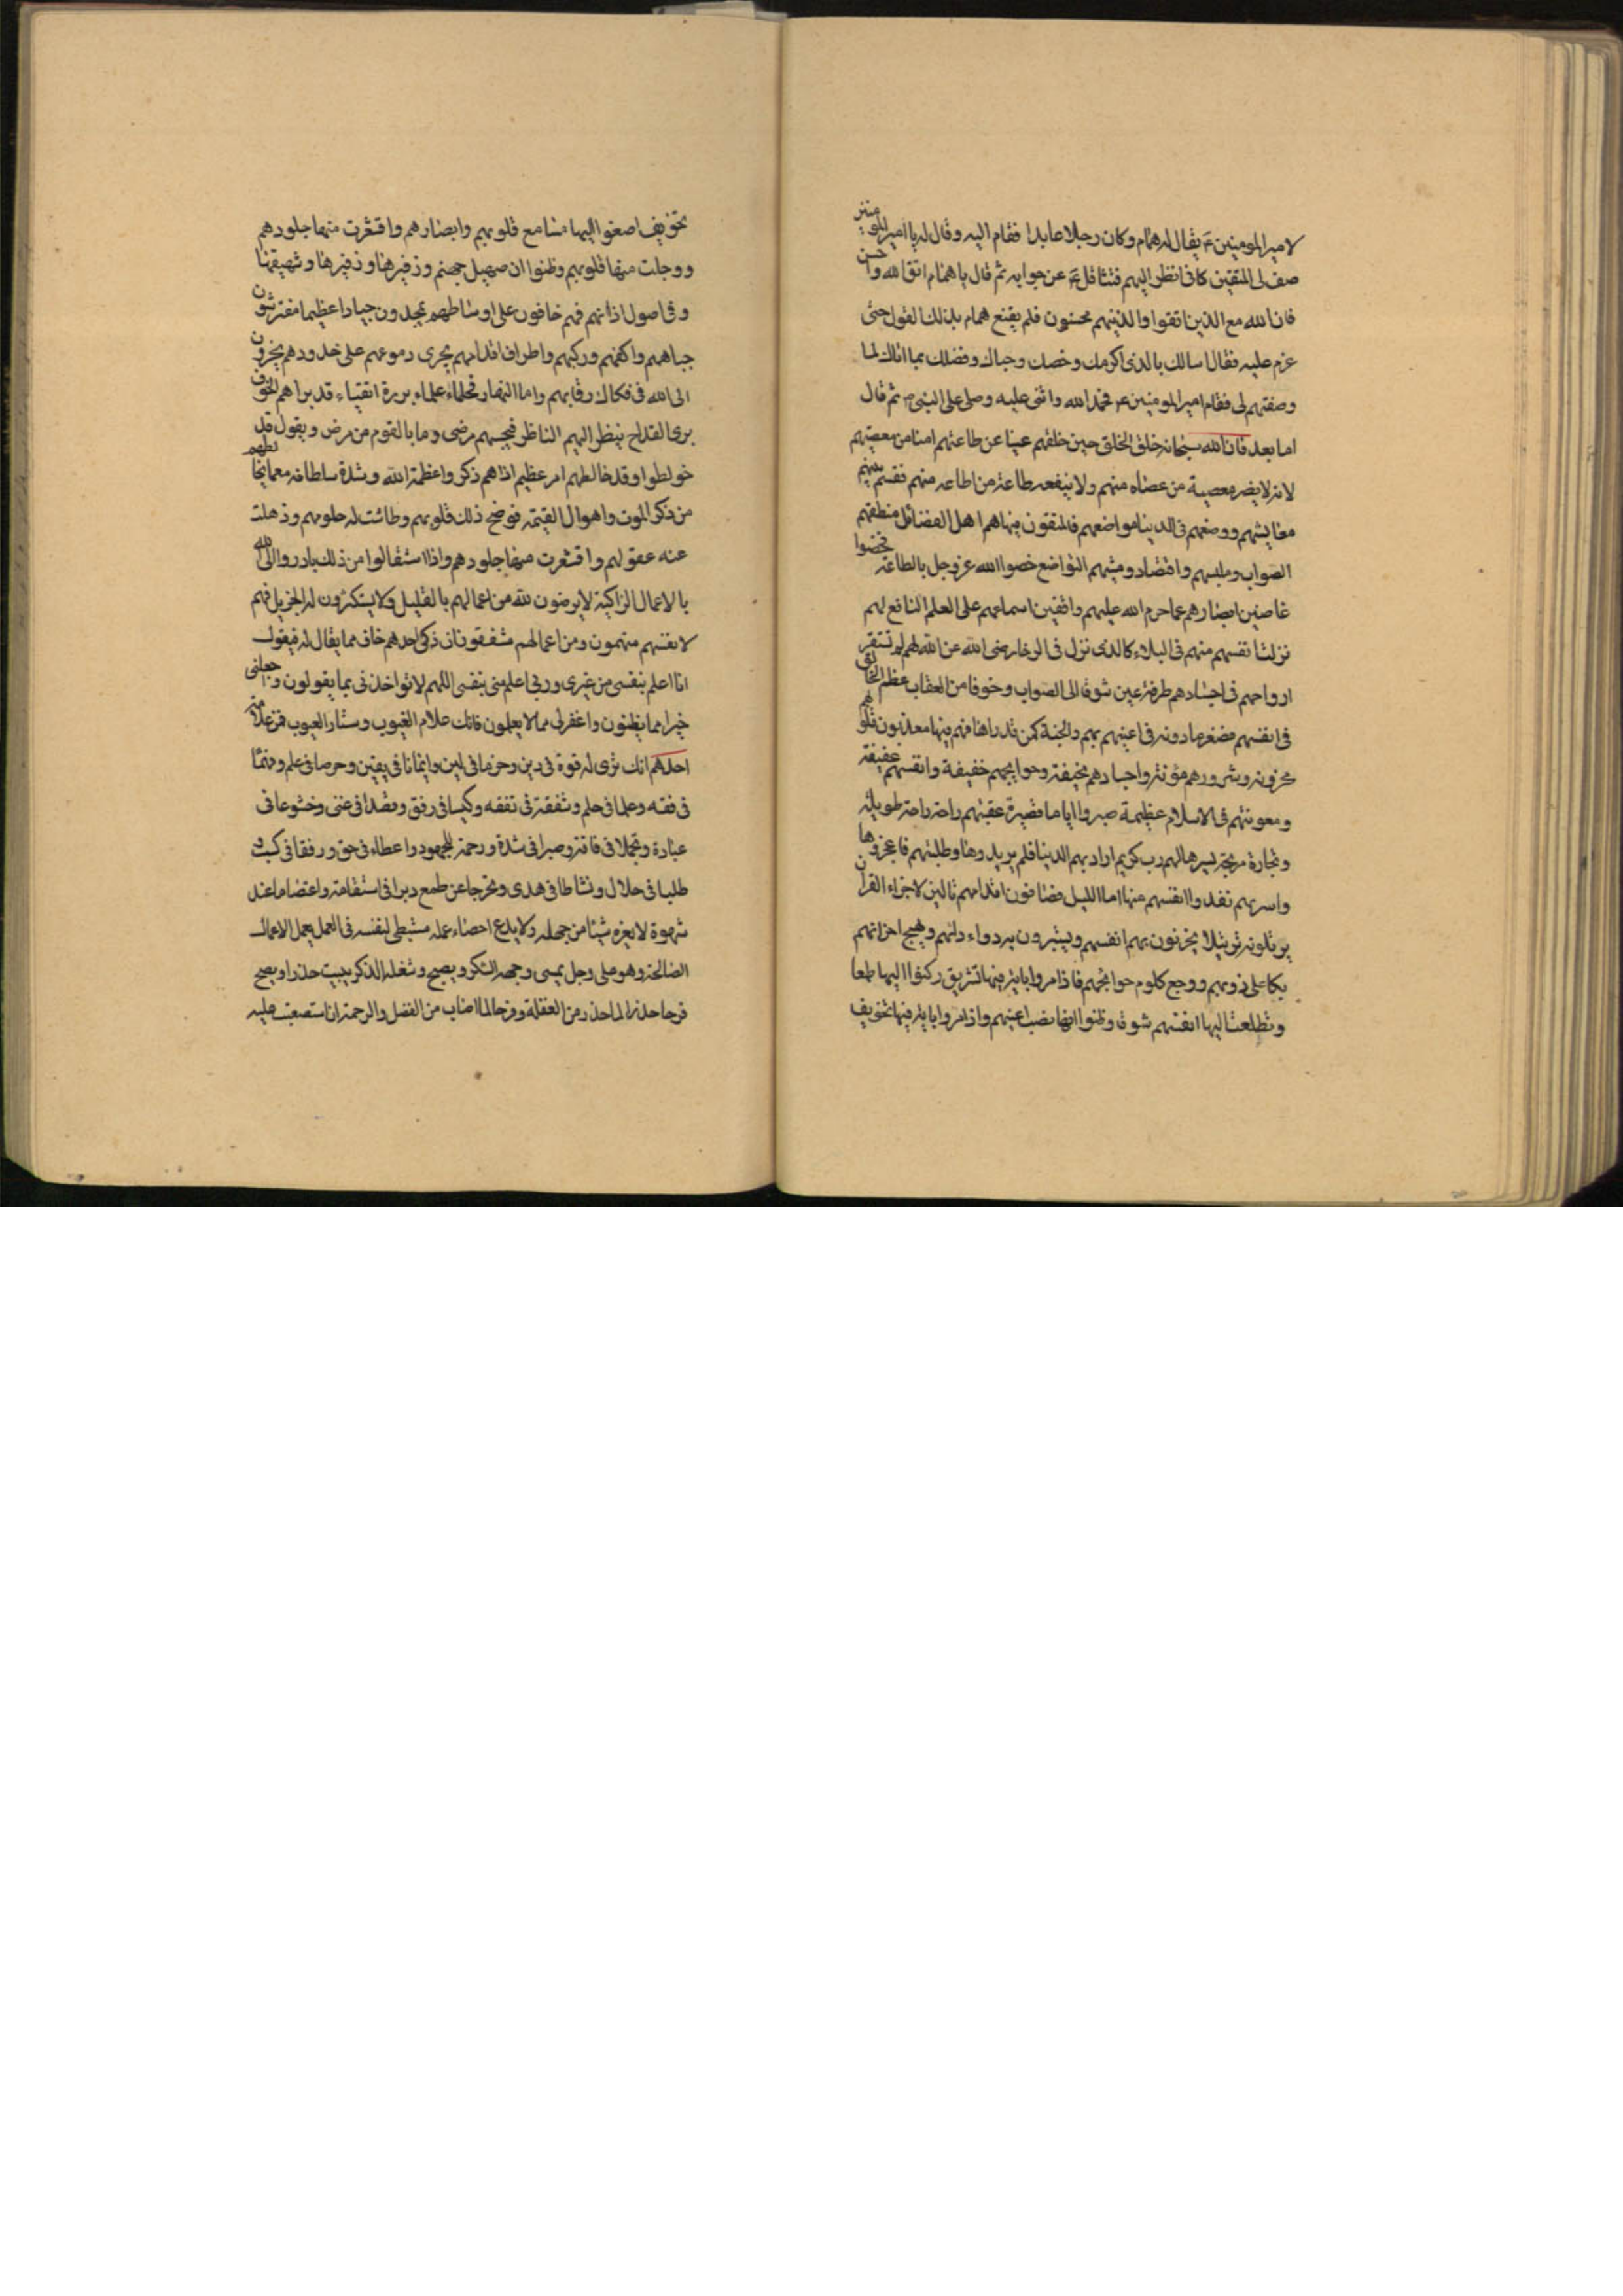 لامير المومنين ع يقال له همام وكان رجلا عابدا فقام اليه وقال له يا امير المومنين
صف لى المتقين كانى انظر اليهم فتثاقل ع عن جوابه ثم قال يا همام اتق الله واحسن
فان الله مع الذين اتقوا والذينهم محسنون فلم يقنع همام بذلك القول حتى
عزم عليه فقال اسالك بالذى اكرمك وخصك وحباك وفضلك بما اتاك لما
وصفتهم لى فقام امير المومنين ع فحمد الله واثنى عليه وصلى على النبى ص ثم قال
اما بعد فان الله سبحانه خلق الخلق حين خلقهم غنيا عن طاعتهم امنا من معصيتهم
لانه لا يضر معصية من عصاه منهم ولا ينفعه طاعة من اطاعه منهم فقسم بينهم
معايشهم ووضعهم فى الدينا مواضعهم فالمتقون فيها هم اهل الفضائل منطقهم
الصواب وملبسهم واقتصاد ومشيهم التواضع خضوا الله عز وجل بالطاعة فخضوا
غاضين ابصارهم عما حرم الله عليهم واقفين اسماعهم على العلم النافع لهم
نزلت انفسهم منهم فى البلاء كالذى نزل فى الرخا رضى الله عن الله لهم لم تستقر
ارواحهم فى اجسادهم طرفة عين شوقا الى الصواب وخوفا من العقاب عظم الخالق
فى انفسهم فصغر ما دونه فى اعينهم بهم والجنة كمن قد راها فهم فيها معذبون قلوبهم
محزونه وشرورهم مؤنة واجسادهم نحيفة وحوايجهم خفيفة وانفسهم عفيفة
ومعونتهم فى الاسلام عظيمة صبروا اياما قصيرة عقبتهم راحة راحة طويلة
وتجارة مربحة يسرها لهم رب كريم ارادبهم الدينا فلم يريدوها وطلبتهم فاعجزوها
واسرتهم نفدوا انفسهم منها اما الليل فصافون اقدامهم تالين لاجزاء القران
يرتلونه ترتيلا يحزنون بهم انفسهم ويستبرون به دواء دائهم ويهيج احزانهم
بكا على ذنوبهم ووجع كلوم حوا بجهم فاذا مروا باية فيها تشريق ركنوا اليها طمعا
وتطلعت اليها انفسهم شوقا وظنوا انها نصب اعينهم واذا مروا باية فيها تخويف
تخويف اصغوا اليها مسامع قلوبهم وابصارهم واقشعرت منها جلودهم
ووجلت منها قلوبهم وظنوا ان صهيل جهنم وزفيرها وزفيرها وشهيقها
وفى اصول اذانهم فهم خافون على اوساطهم يمجدون جبارا عظيما مفترشون
جباههم واكفهم وركبهم واطراف اقدامهم يجرى دموعهم على خدودهم يجرون
الى الله فى فكاك رقابهم واما النهار فحلماء علماء بررة اتقياء قد براهم الخوف
برى القداح ينظر اليهم الناظر فيحسبهم مرضى وما بالقوم من مرض ويقول قد
خولطوا وقد خالطهم امر عظيم اذاهم ذكروا عظمة الله وشدة سلطانه مع ما يخالطهم
من ذكر الموت واهوال القيمة فوضح ذلك قلوبهم وطاشت له حلومهم وذهلت
عنه عقولهم واقشعرت منها جلودهم واذا استقالوا من ذلك بادروا الى الله
بالاعمال الزاكية لا يرضون لله من اعمالهم بالقليل ولا يستكثرون له الجزيل فهم
لانفسهم متهمون ومن اعمالهم مشفقون ان ذكى احدهم خاف مما يقال له فيقول
انا اعلم بنفسى من غيرى وربى اعلم منى بنفسى اللهم لا تواخذنى بما يقولون وجعلنى
خيرا مما يظنون واغفر لى مما لا يعلمون فانك علام الغيوب وستار العيوب فمن علامة
احدهم انك ترى له قوة فى دين وحزما فى لين وايمانا فى يقين وحرصا فى علم وفهما
فى فقه وعلما فى حلم وشفقة فى نفقه وكيسا فى رفق وقصدا فى غنى وخشوعا فى
عبادة وتجملا فى فاقة وصبرا فى شدة ورحمة للمجهود واعطاء فى حق ورفقا فى كسب و
طلبا فى حلال ونشاطا فى هدى وتحرجا عن طمع وبرا فى استقامة واعتصاما عند
شهوة لا يغره شيئا من جهله ولا يدع احصاء عمله مستبطى لنفسه فى العمل يعمل الاعمال
الصالحة وهو على وجل يمسى وجهه الشكر ويصبح وشغله الذكر يبيت حذرا ويصبح
فرحا حذرا لما حذر من الغفلة وفرحا لما اصاب من الفضل والرحمة ان استصعبت عليه